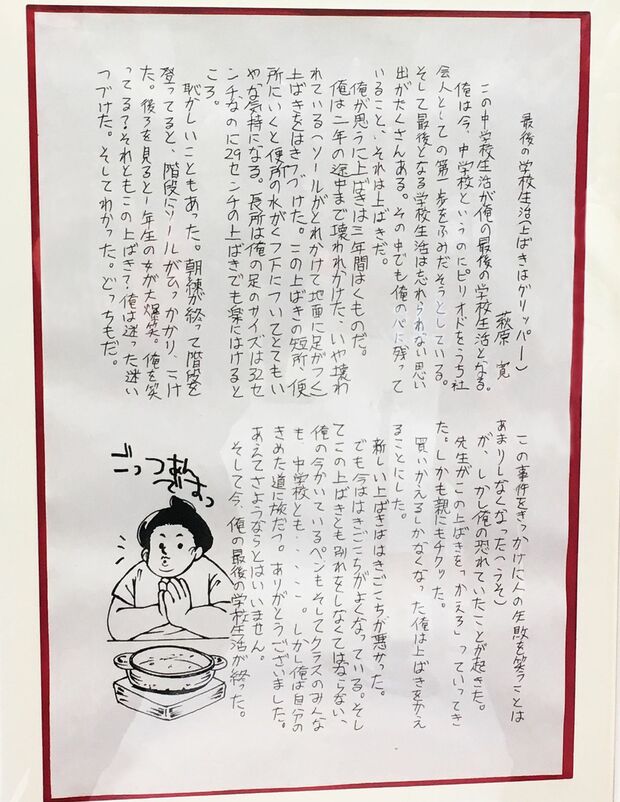 最後の学校生活(上ばきはグリッパー)
萩原 寛
この中学校生活が俺の最後の学校生活となる。
俺は今、中学校というのにピリオドをうち社
会人としての第一歩をふみだそうとしている。
そして最後となる学校生活は忘れられない思い
出がたくさんある。その中でも俺の心に残って
いること、それは上ばきだ。
俺が思うに上ばきは三年間はくものだ。
俺は二年の途中まで壊われかけた、いや壊わ
れている(ソールがとれかけて地面に足がつく)
上ばきをはきつづけた。この上ばきの短所、便
所にいくと便所の水がくつ下についてとてもい
やな気持になる。長所は俺の足のサイズは32セ
ンチなのに29センチの上ばきでも楽にはけると
ころ。
恥かしいこともあった。朝練が終って階段を
登ってると、階段にソールがひっかかり、こけ
た。後ろを見ると1年生の女が大爆笑。俺を笑
ってる?それともこの上ばき?俺は迷った迷い
つづけた。そしてわかった。どっちもだ。
この事件をきっかけに人の失敗を笑うことは
あまりしなくなった(うそ)
が、しかし俺の恐れていたことが起きた。
先生がこの上ばきを「かえろ」っていってき
た。しかも親にもチクッた。
買いかえるしかなくなった俺は上ばきをかえ
ることにした。
新しい上ばきははきごこちが悪かった。
でも今ははきごこちがよくなっている。そし
てこの上ばきとも別れをしなくてはならない、
俺の今かいているペンもそしてクラスのみんな
も、中学校とも・・・・。しかし俺は自分の
きめた道に旅だつ。ありがとうございました。
あえてさようならとはいいません。
そして今、俺の最後の学校生活が終った。
ごっつぁん
ですっ